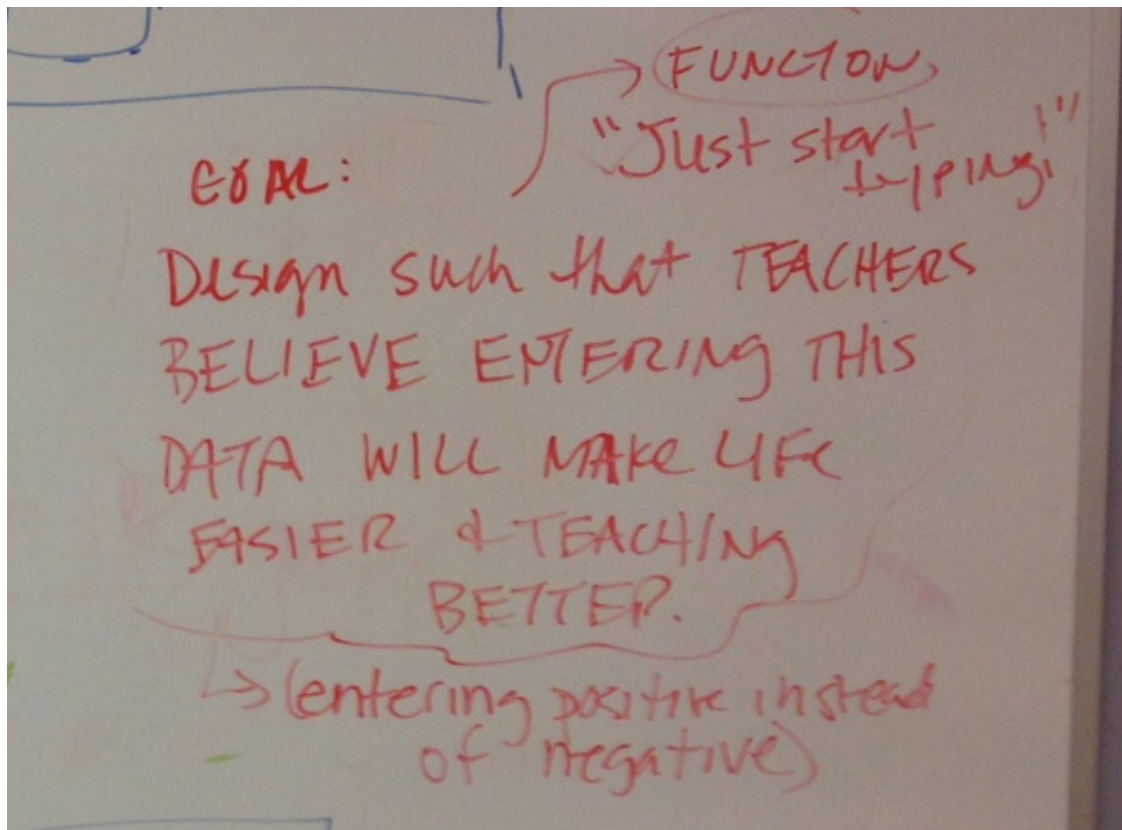 FUNCTION
"Just start
typing!"
GOAL:
Design such that TEACHERS
BELIEVE ENTERING THIS
DATA WILL MAKE LIFE
EASIER & TEACHING
BETTER.
(entering positive instead
of negative)